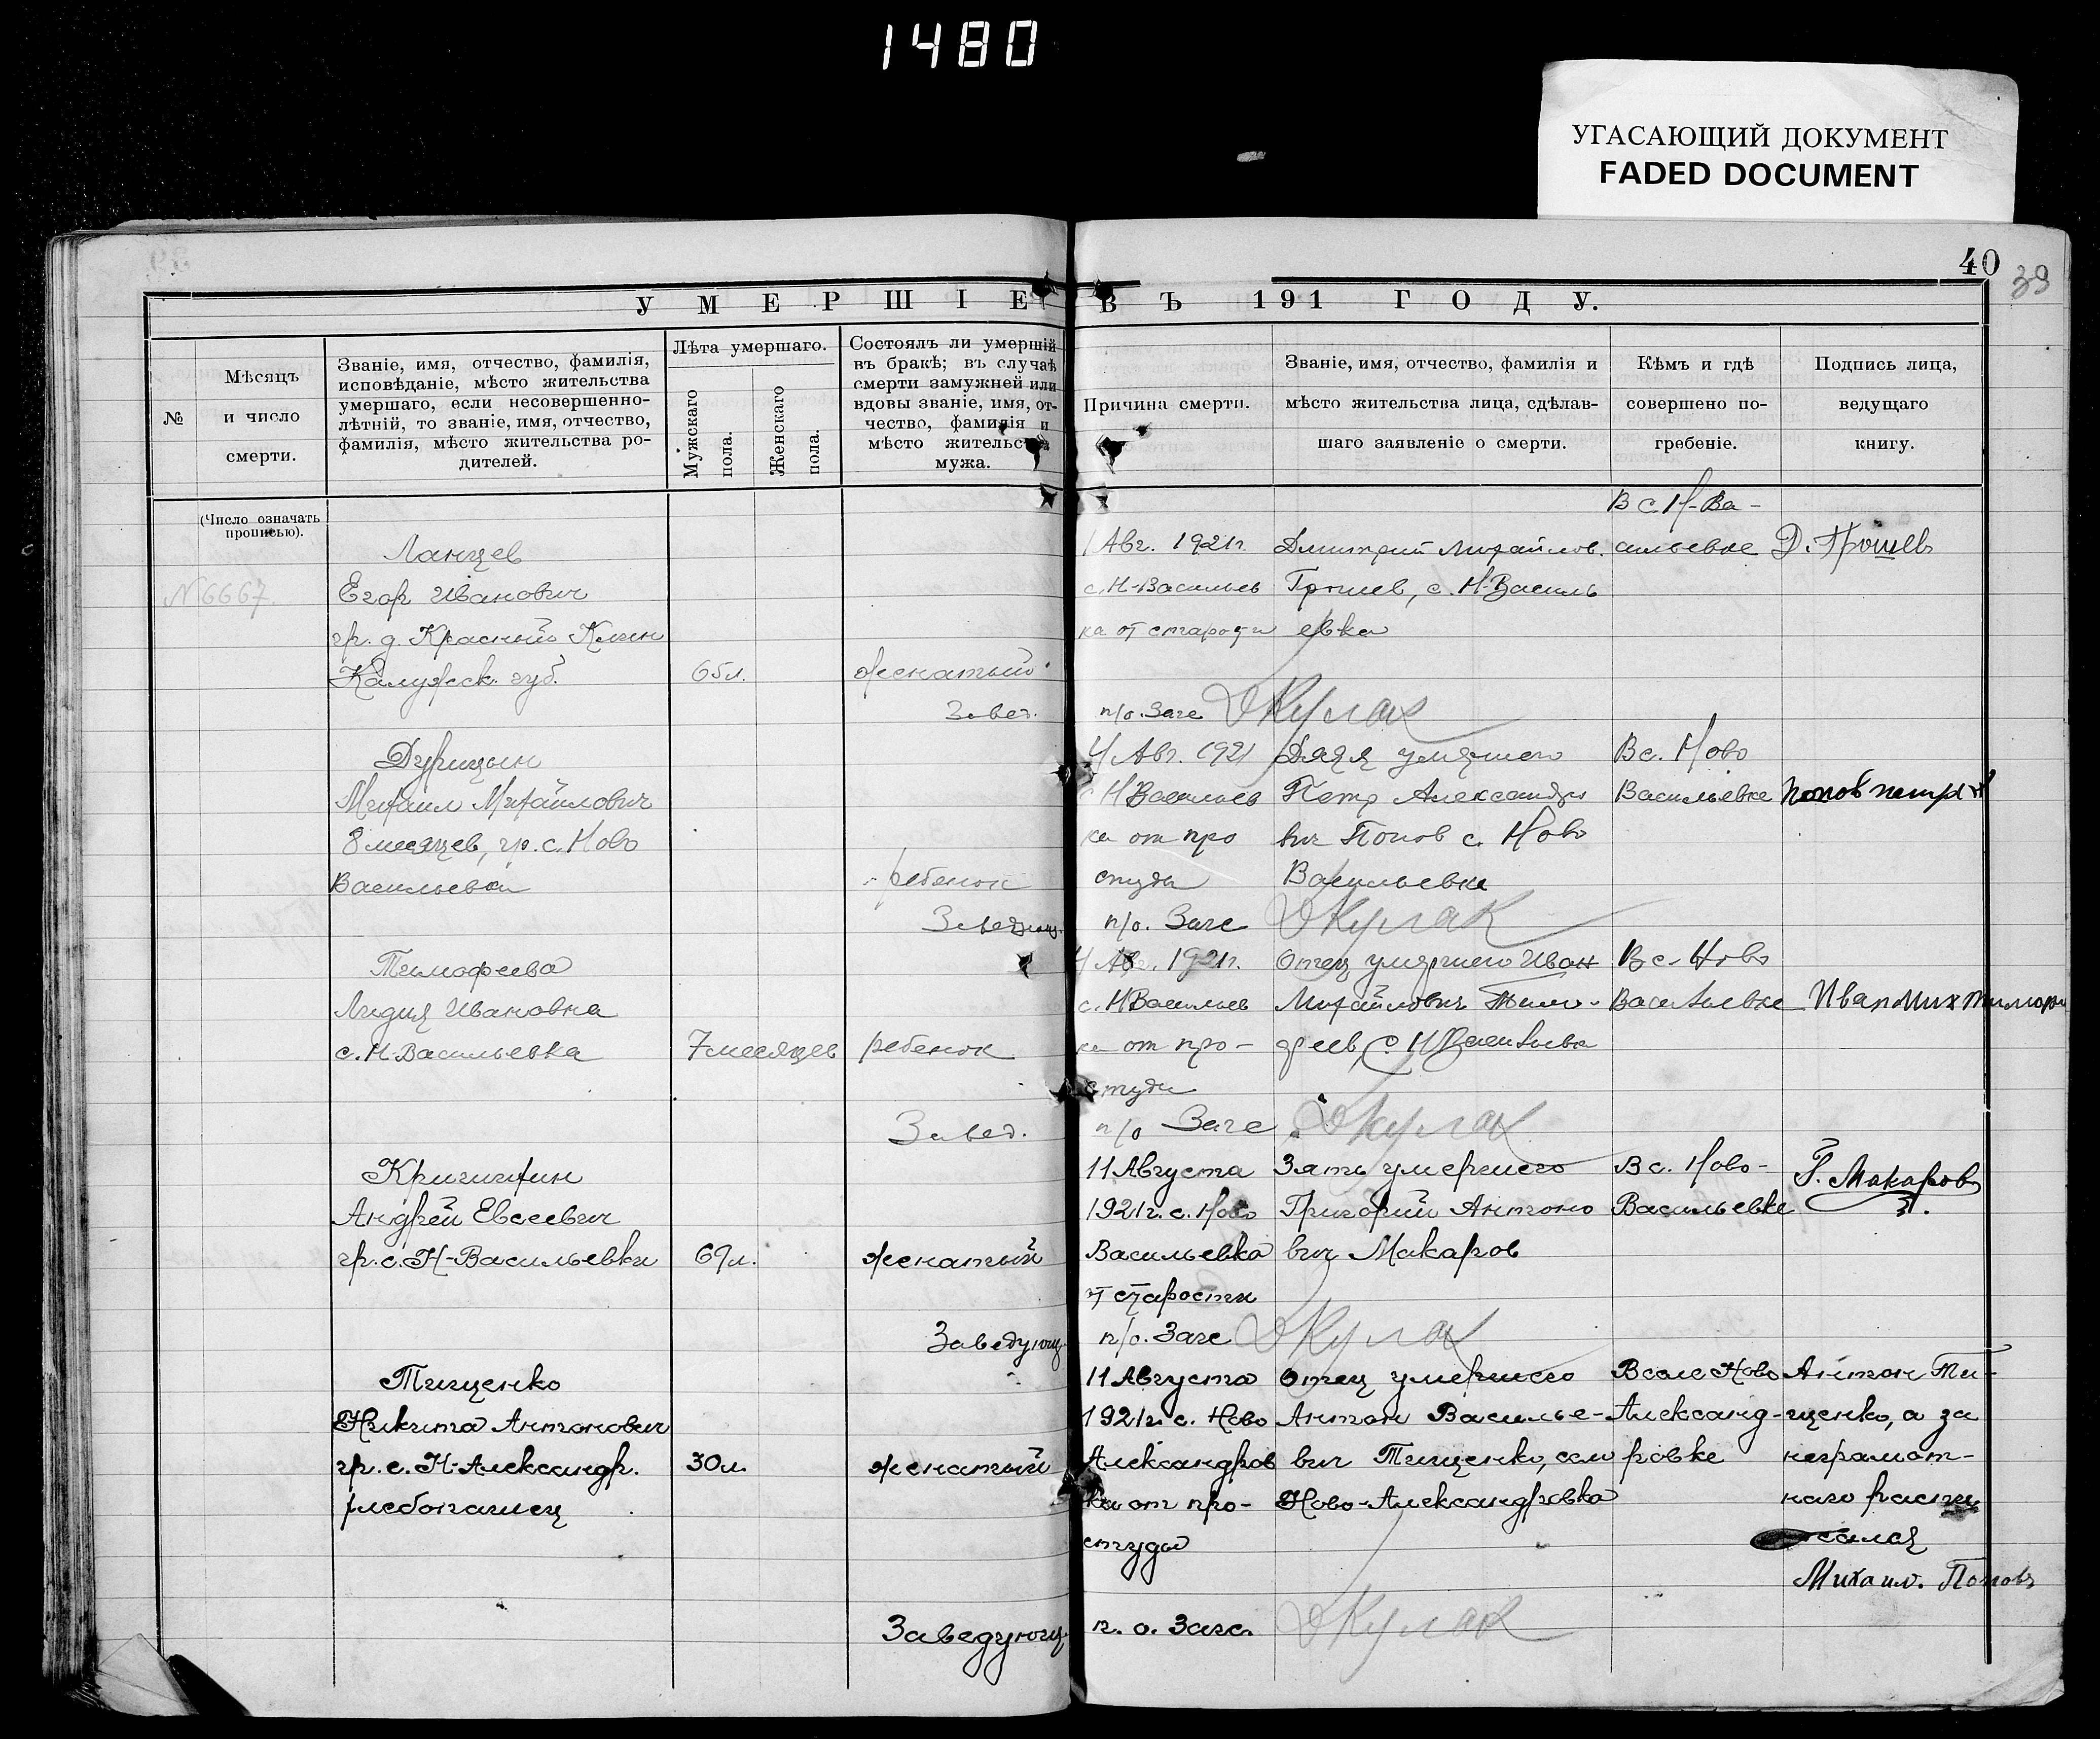 1480
УГАСАЮЩИЙ ДОКУМЕНТ
FADED DOCUMENT
40
39
УМЕРШІЕ ВЪ 191 ГОДУ.
№
Мѣсяцъ
и число
смерти.
Званіе, имя, отчество, фамилія,
исповѣданіе, мѣсто жительства
умершаго, если несовершенно-
лѣтній, то званіе, имя, отчество,
фамилія, мѣсто жительства ро-
дителей.
Лѣта умершаго.
Мужскаго
пола.
Женскаго
пола.
Состоялъ ли умершій
въ бракѣ; въ случаѣ
смерти замужней или
вдовы званіе, имя, от-
чество, фамилія и
мѣсто жительства
мужа.
Причина смерти.
Званіе, имя, отчество, фамилія и
мѣсто жительства лица, сдѣлав-
шаго заявленіе о смерти.
Кѣмъ и гдѣ
совершено по-
гребеніе.
Подпись лица,
ведущаго
книгу.
(Число означать
прописью).
№6667
Ланцев
Егор Иванович
гр. д. Красный Клин
Калужск. губ.
65 л.
женатый
1 Авг. 1921 г.
с. Н-Васильев
ка от старости
Дмитрий Михайлов.
Грошев, с. Н-Василь
евка
В с. Н-Ва-
сильевке
Д. Грошевъ
Завед.
п/о. Загс
ДКулак
Дурицын
Михаил Михайлович
8 месяцев, гр. с. Ново
Васильевки
ребенок
4 Авг. 1921
с Н Васильев
ка от про
студы
Дядя умершего
Петр Александро
вич Попов с. Ново
Васильевка
В с. Ново
Васильевке
Попов петр
Заведующ.
п/о. Загс
ДКулак
Тимофеева
Лидия Ивановна
с. Н-Васильевка
7 месяцев
ребенок
4 Авг. 1921 г.
с. Н Васильев
ка от про-
студы
Отец умершего Иван
Михайлович Тимо-
феев, с. Н Васильевка
В с. Ново
Васильевке
Иван Мих Тимофе
Завед.
п/о Загс
ДКулак
Андрей Евсеевич
гр. с. Н-Васильевки
69 л.
женатый
11 Августа
1921 г. с. Ново
Васильевка
от старости
Зять умершего
Григорий Антоно
вич Макаров
В с. Ново-
Васильевке
Г. Макаров
Заведующ.
п/о. Загс
ДКулак
Тищенко
Никита Антонович
гр. с. Н-Александр.
хлебопашец
30 л.
женатый
11 Августа
1921 г. с. Ново
Александров
ка от про-
студы
Отец умершего
Антон Василье-
вич Тищенко, село
Ново-Александровка
В селе Ново
Александ-
ровке
Антон Ти-
щенко, а за
неграмот-
наго распи
сался
Михаил. Поповъ
Заведующ.
п. о. Загс.
ДКулак